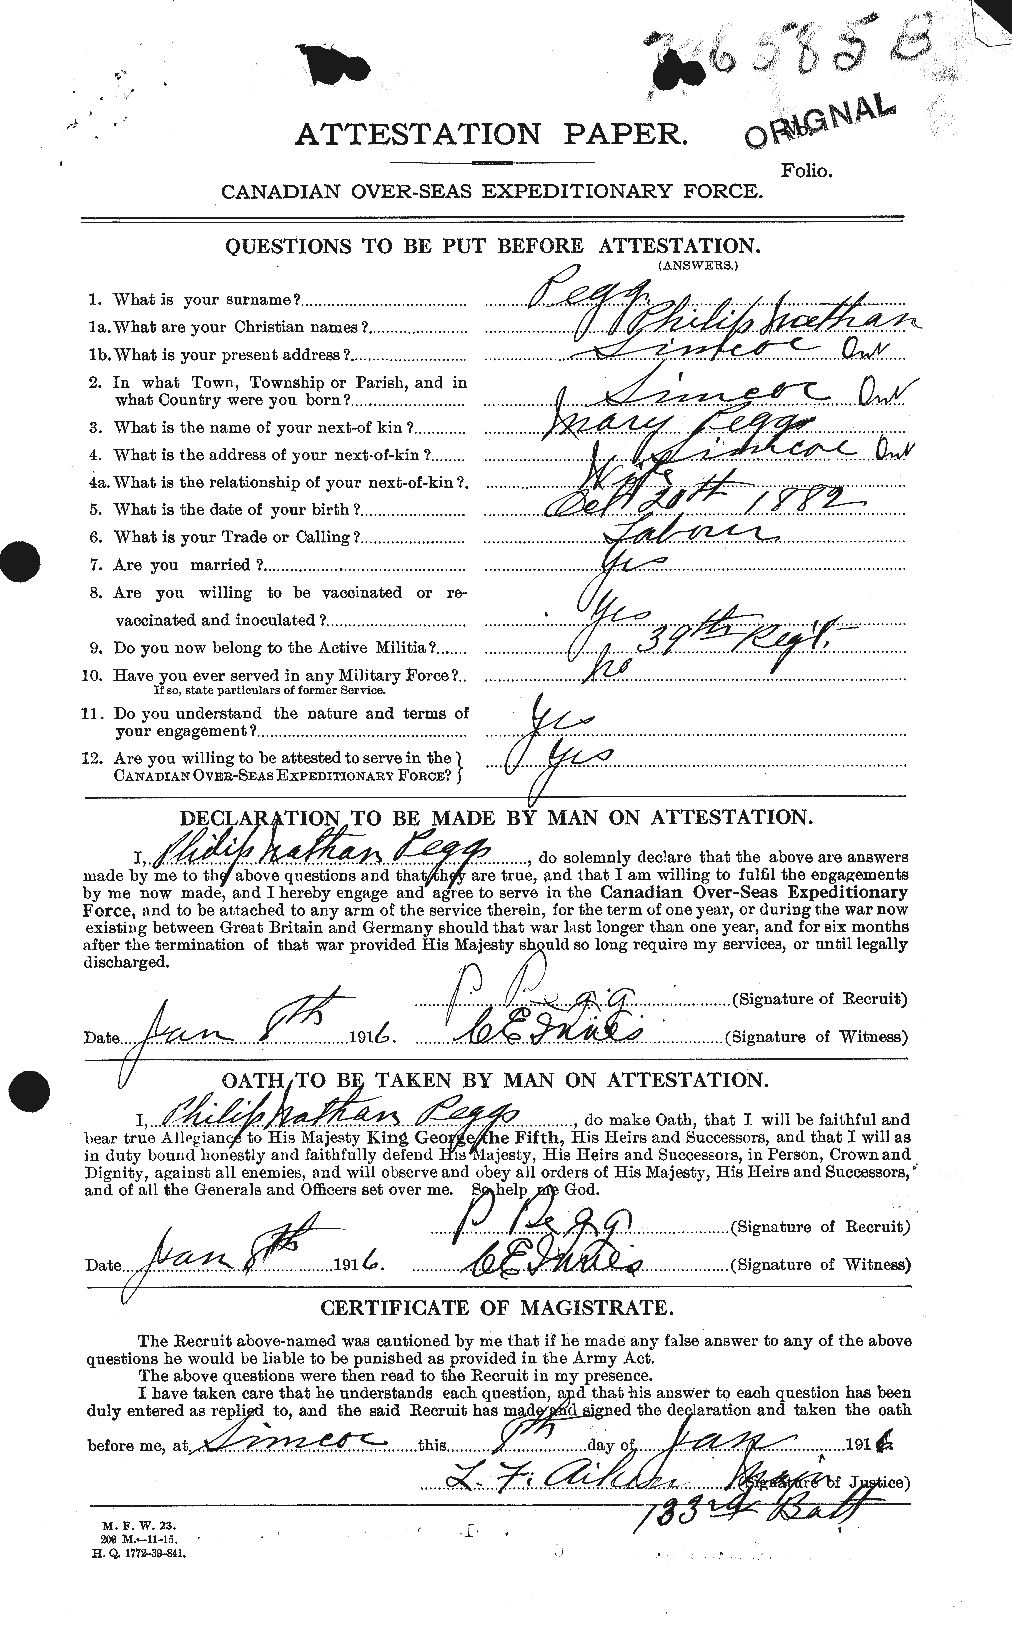 65858
ORIGNAL
ATTESTATION PAPER.
No.
Folio.
CANADIAN OVER-SEAS EXPEDITIONARY FORCE.
QUESTIONS TO BE PUT BEFORE ATTESTATION.
(ANSWERS.)
1. What is your surname? Pegg
1a. What are your Christian names? Philip Nathan
1b. What is your present address? Simcoe Ont
2. In what Town, Township or Parish, and in
what Country were you born? Simcoe Ont
3. What is the name of your next-of kin? Mary Pegg
4. What is the address of your next-of-kin? Simcoe Ont
4a. What is the relationship of your next-of-kin? Wife
5. What is the date of your birth? 20th 1882
6. What is your Trade or Calling? Labourer
7. Are you married? Yes
8. Are you willing to be vaccinated or re-
vaccinated and inoculated? Yes
9. Do you now belong to the Active Militia? 39th Reg't.
10. Have you ever served in any Military Force? no
If so, state particulars of former Service.
11. Do you understand the nature and terms of
your engagement? Yes
12. Are you willing to be attested to serve in the
CANADIAN OVER-SEAS EXPEDITIONARY FORCE? Yes
DECLARATION TO BE MADE BY MAN ON ATTESTATION.
I, Philip Nathan Pegg, do solemnly declare that the above are answers
made by me to the above questions and that they are true, and that I am willing to fulfil the engagements
by me now made, and I hereby engage and agree to serve in the Canadian Over-Seas Expeditionary
Force, and to be attached to any arm of the service therein, for the term of one year, or during the war now
existing between Great Britain and Germany should that war last longer than one year, and for six months
after the termination of that war provided His Majesty should so long require my services, or until legally
discharged.
P Pegg (Signature of Recruit)
Date Jan 8th 1916. C E Innes (Signature of Witness)
OATH TO BE TAKEN BY MAN ON ATTESTATION.
I, Philip Nathan Pegg, do make Oath, that I will be faithful and
bear true Allegiance to His Majesty King George the Fifth, His Heirs and Successors, and that I will as
in duty bound honestly and faithfully defend His Majesty, His Heirs and Successors, in Person, Crown and
Dignity, against all enemies, and will observe and obey all orders of His Majesty, His Heirs and Successors,
and of all the Generals and Officers set over me. So help me God.
P Pegg (Signature of Recruit)
Date Jan 8th 1916. C E Innes (Signature of Witness)
CERTIFICATE OF MAGISTRATE.
The Recruit above-named was cautioned by me that if he made any false answer to any of the above
questions he would be liable to be punished as provided in the Army Act.
The above questions were then read to the Recruit in my presence.
I have taken care that he understands each question, and that his answer to each question has been
duly entered as replied to, and the said Recruit has made and signed the declaration and taken the oath
before me, at Simcoe this 8th day of Jan 1916
L. F. Aiken Major (Signature of Justice)
133rd Batt
M. F. W. 23.
200 M.-11-15.
H. Q. 1772-39-841.